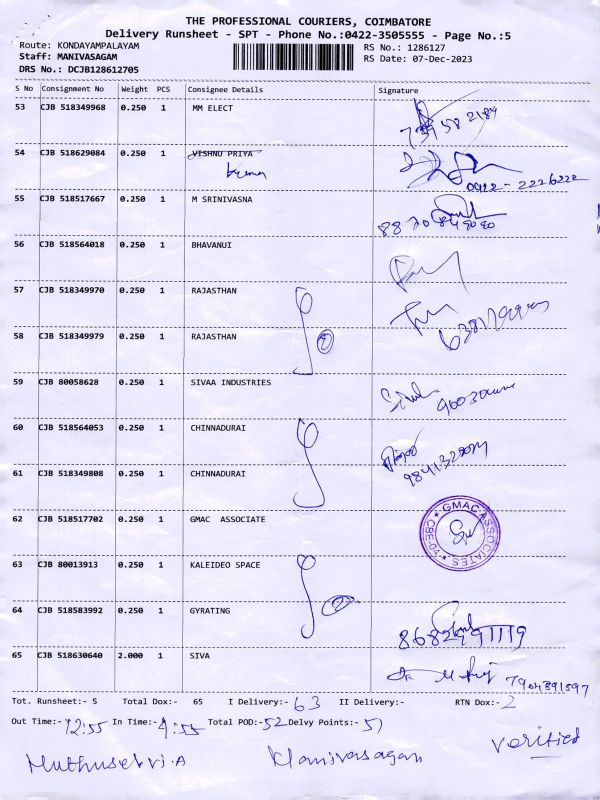 THE PROFESSIONAL COURIERS, COIMBATORE
Delivery Runsheet - SPT - Phone No.:0422-3505555 - Page No.:5
Route: KONDAYAMPALAYAM RS No.: 1286127
Staff: MANIVASAGAM RS Date: 07-Dec-2023
DRS No.: DCJB128612705
S No Consignment No Weight PCS Consignee Details Signature
53 CJB 518349968 0.250 1 MM ELECT
54 CJB 518629084 0.250 1 VISHNU PRIYA
0422-2226222
55 CJB 518517667 0.250 1 M SRINIVASNA
56 CJB 518564018 0.250 1 BHAVANUI
57 CJB 518349970 0.250 1 RAJASTHAN
58 CJB 518349979 0.250 1 RAJASTHAN
59 CJB 80058628 0.250 1 SIVAA INDUSTRIES
60 CJB 518564053 0.250 1 CHINNADURAI
61 CJB 518349808 0.250 1 CHINNADURAI
62 CJB 518517702 0.250 1 GMAC ASSOCIATE
GMAC ASSOCIATES
63 CJB 80013913 0.250 1 KALEIDEO SPACE
64 CJB 518583992 0.250 1 GYRATING
65 CJB 518630640 2.000 1 SIVA
7904391597
Tot. Runsheet:- 5 Total Dox:- 65 I Delivery:- 63 II Delivery:- RTN Dox:- 2
Out Time:- 12:55 In Time:- 4:55 Total POD:- 52 Delvy Points:- 51
Muthuselvi.A Manivasagan verified